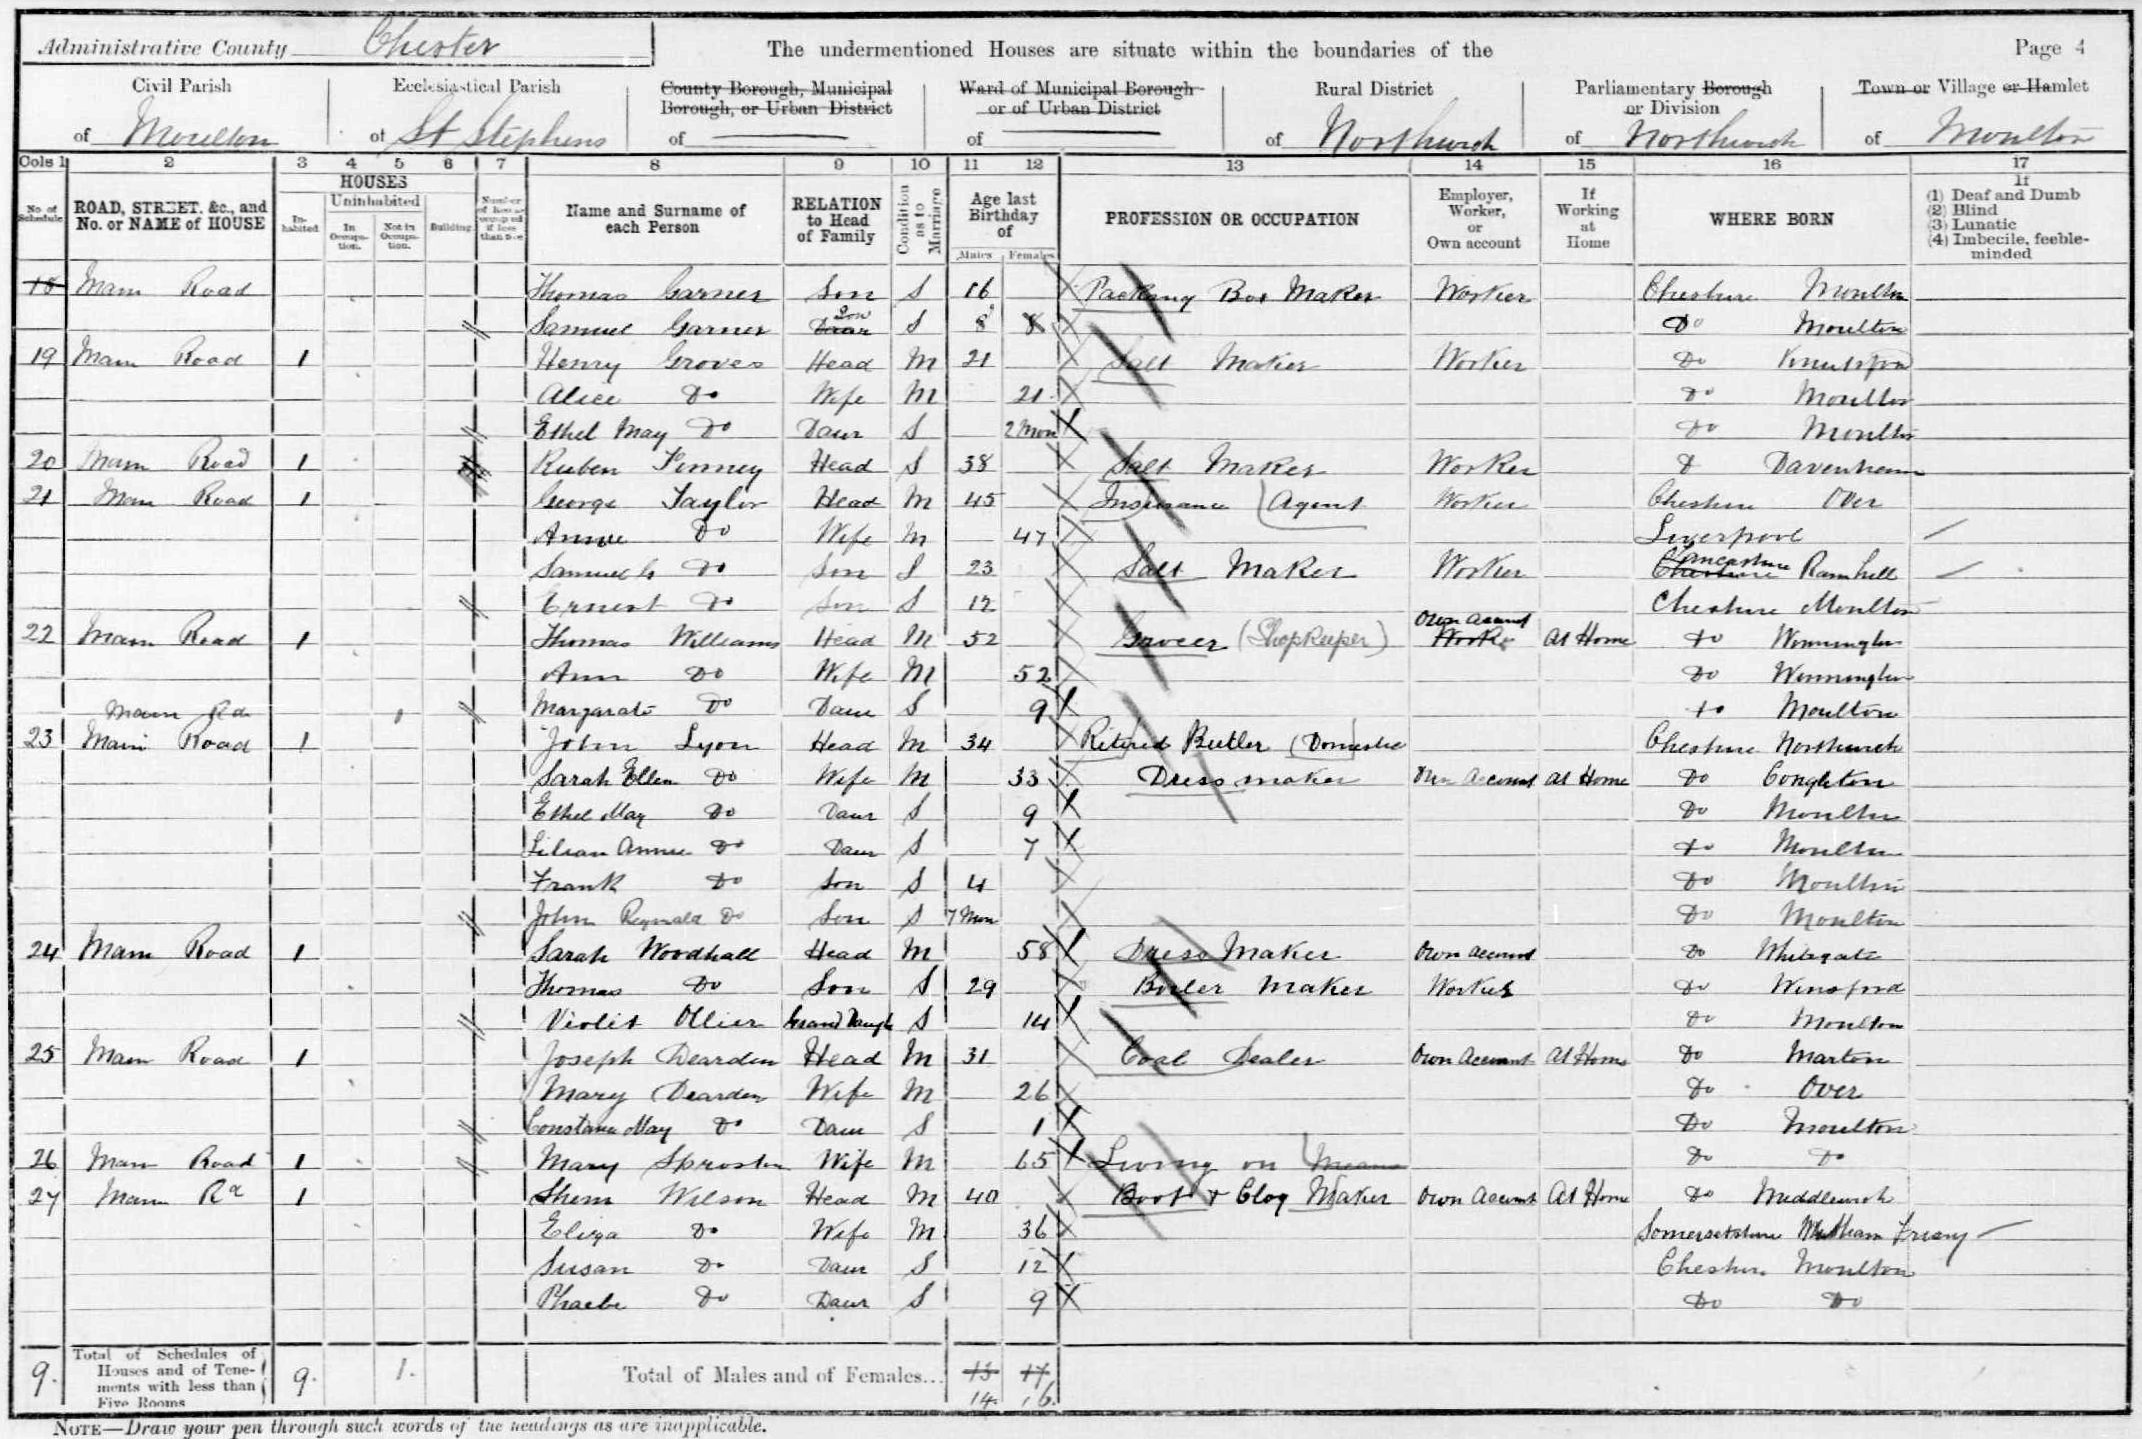 Administrative County Chester The undermentioned Houses are situate within the boundaries of the Page 4
Civil Parish Ecclesiastical Parish County Borough, Municipal Borough, or Urban District Ward of Municipal Borough or of Urban District Rural District Parliamentary Borough or Division Town or Village or Hamlet
of Moulton of St Stephens of of of Northwich of Northwich of Moulton
Cols 1 2 3 4 5 6 7 8 9 10 11 12 13 14 15 16 17
No. of Schedule ROAD, STREET, &c., and No. or NAME of HOUSE HOUSES Inhabited Uninhabited In Occupation. Not in Occupation. Building Number of Rooms occupied if less than five Name and Surname of each Person RELATION to Head of Family Condition as to Marriage Age last Birthday of Males Females PROFESSION OR OCCUPATION Employer, Worker, or Own account If Working at Home WHERE BORN If (1) Deaf and Dumb (2) Blind (3) Lunatic (4) Imbecile, feeble-minded
18 Main Road Thomas Garner Son S 16 Packing Box Maker Worker Cheshire Moulton
Samuel Garner Daur Son S 8 8 Do Moulton
19 Main Road 1 Henry Groves Head M 21 Salt Maker Worker Do Knutsford
Alice Do Wife M 21 Do Moulton
Ethel May Do Daur S 2 Mon Do Moulton
20 Main Road 1 Reuben Finney Head S 38 Salt Maker Worker D Davenham
21 Main Road 1 George Taylor Head M 45 Insurance Agent Worker Cheshire Over
Annie Do Wife M 47 Liverpool
Samuel G Do Son S 23 Salt Maker Worker Cheshire Lancashire Rainhill
Ernest Do Son S 12 Cheshire Moulton
22 Main Road 1 Thomas Williams Head M 52 Grocer (Shopkeeper) Worker Own account At Home Do Winnington
Ann Do Wife M 52 Do Winnington
Main Rd 1 Margarate Do Daur S 9 Do Moulton
23 Main Road 1 John Lyon Head M 34 Retired Butler (Domestic Cheshire Northwich
Sarah Ellen Do Wife M 33 Dress maker Own Account At Home Do Congleton
Ethel May Do Daur S 9 Do Moulton
Lilian Annie Do Daur S 7 Do Moulton
Frank Do Son S 4 Do Moulton
John Reginald Do Son S 7 Mon Do Moulton
24 Main Road 1 Sarah Woodhall Head M 58 Dress Maker Own account Do Whitegate
Thomas Do Son S 29 Boiler Maker Worker Do Winsford
Violet Ollier Grand Daugh S 14 Do Moulton
25 Main Road 1 Joseph Dearden Head M 31 Coal Dealer Own Account At Home Do Marton
Mary Dearden Wife M 26 Do Over
Constance May Do Daur S 1 Do Moulton
26 Main Road 1 Mary Sproston Wife M 65 Living on Means Do Do
27 Main Rd 1 Shem Wilson Head M 40 Boot & Clog Maker Own Account At Home Do Middlewich
Eliza Do Wife M 36 Somersetshire Friary
Susan Do Daur S 12 Cheshire Moulton
Phaebe Do Daur S 9 Do Do
9. Total of Schedules of Houses and of Tenements with less than Five Rooms 9. 1. Total of Males and of Females... 13 17
14 16
NOTE—Draw your pen through such words of the headings as are inapplicable.